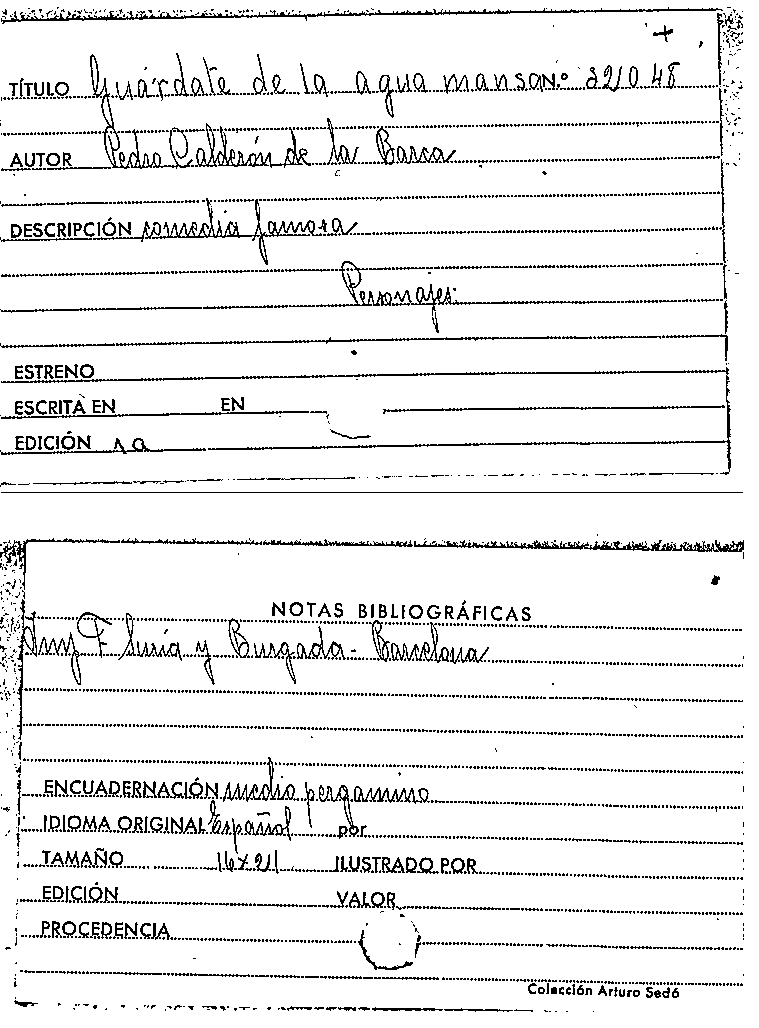 +
TÍTULO Guárdate de la agua mansa N.º 221048
AUTOR Pedro Calderón de la Barca
DESCRIPCIÓN comedia famosa
Personajes:
ESTRENO
ESCRITA EN EN
EDICIÓN
NOTAS BIBLIOGRÁFICAS
F. Suria y Burgada - Barcelona
ENCUADERNACIÓN medio pergamino
IDIOMA ORIGINAL Español por
TAMAÑO 16x21 ILUSTRADO POR
EDICIÓN VALOR
PROCEDENCIA
Colección Arturo Sedó